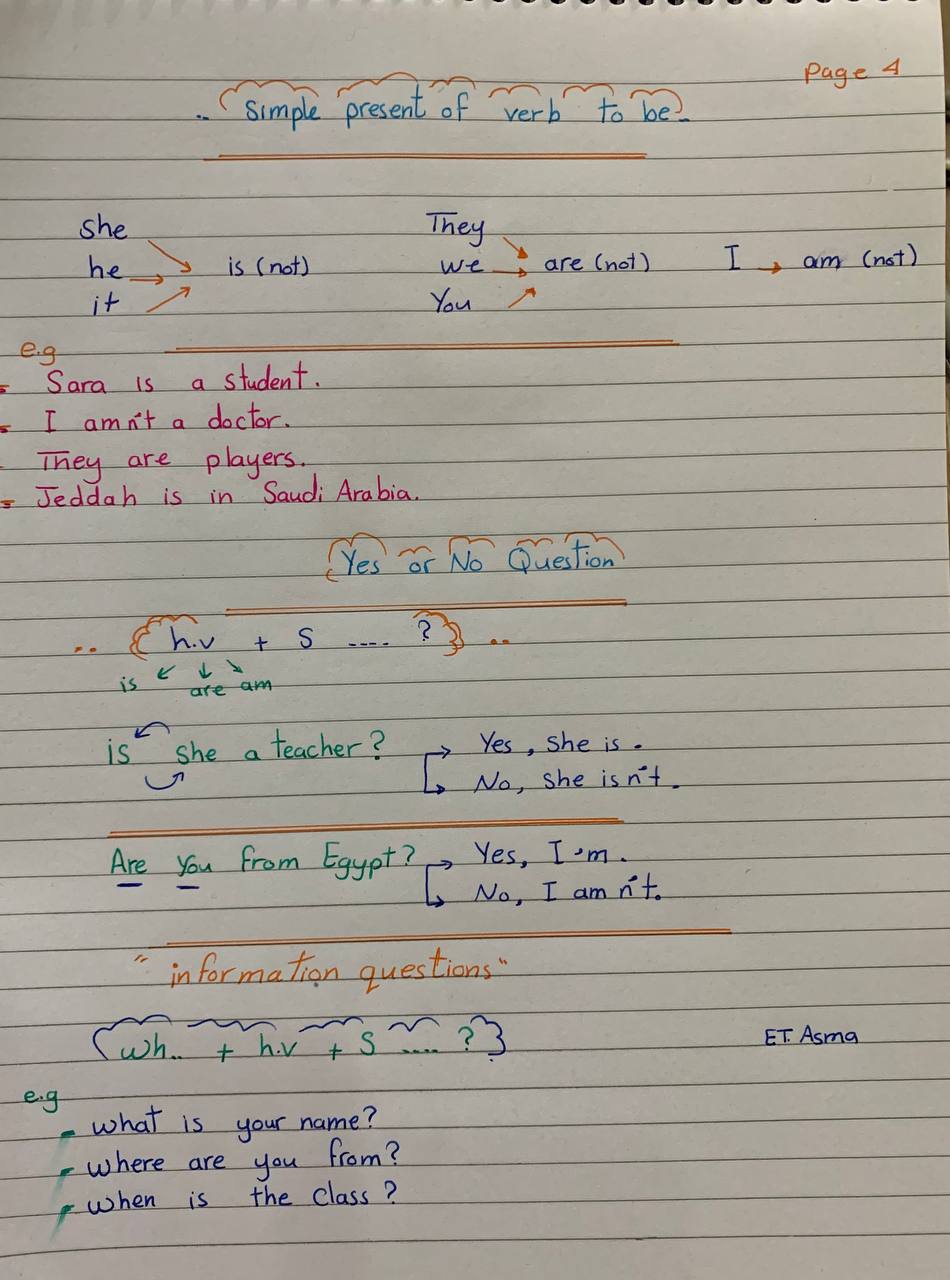 Page 4
.. Simple present of verb to be..
she
he
it
is (not)
They
we
You
are (not)
I → am (not)
e.g
- Sara is a student.
- I amn't a doctor.
- They are players.
- Jeddah is in Saudi Arabia.
Yes or No Question
.. { h.v + S .... ? } ..
is are am
is she a teacher? → Yes, she is.
↳ No, she isn't.
Are you from Egypt? → Yes, I'm.
↳ No, I amn't.
"information questions"
{ wh.. + h.v + S .... ? }
ET. Asma
e.g
- what is your name?
- where are you from?
- when is the class?